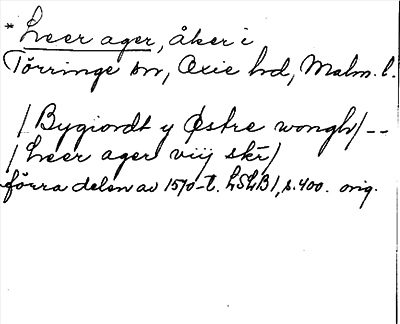 * Leer ager, åker i
Törringe sn, Oxie hd, Malm. l.
/ Bygiordt y Østre wongh / --
/ Leer ager viij skr /
förra delen av 1570-t. LSLB 1, s. 400. orig.